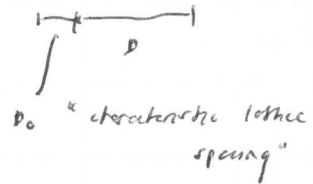 D
D₀ "characteristic lattice
spacing"